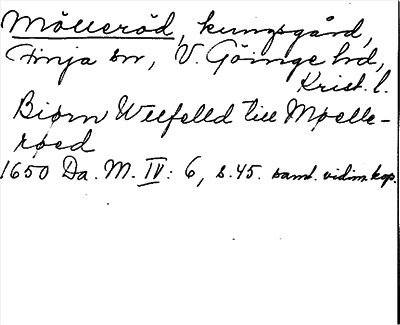 Mölleröd, kungsgård,
Finja sn, V. Göinge hd,
Krist. l.
Biørn Wlfelld till Møelle-
røed
1650 Da. M. IV: 6, s. 45. samt. vidim. kop.